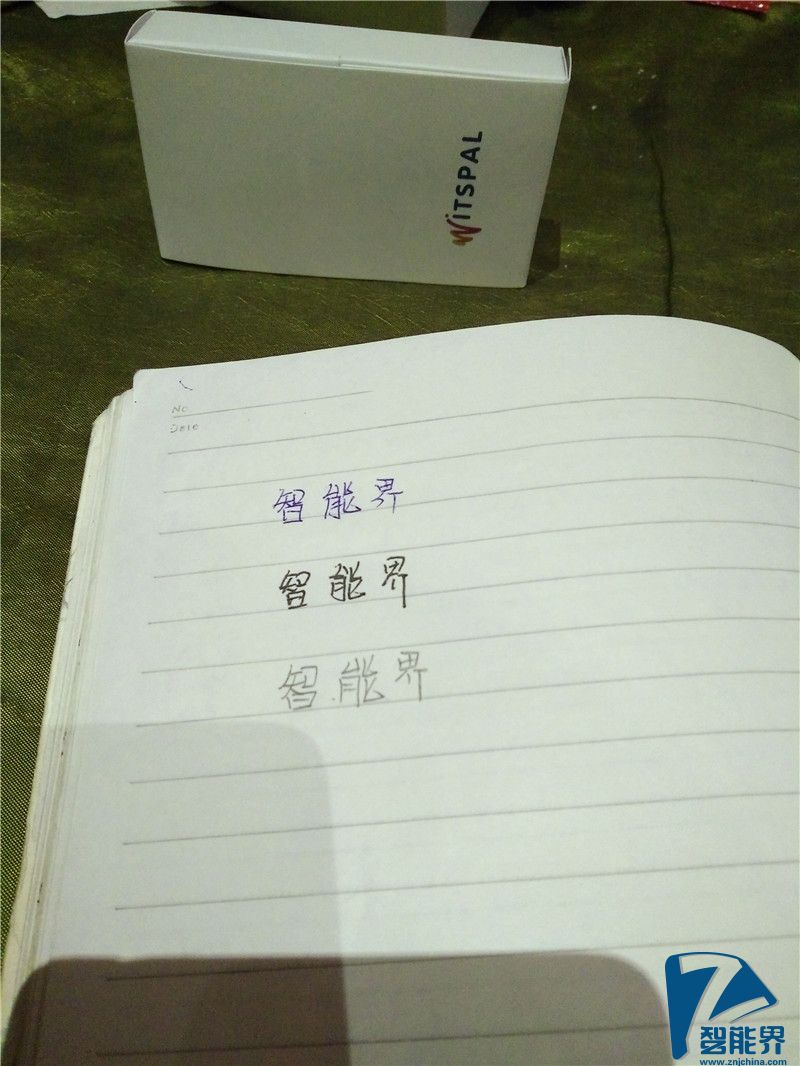 WITSPAL
No
Date
智能界
智能界
智能界
智能界
www.znjchina.com